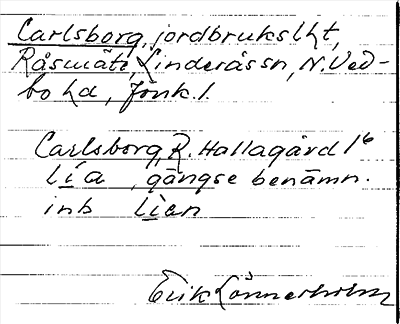 Carlsborg, jordbrukslht,
Råsmäte, Linderås sn, N. Ved-
bo hd, Jönk. l.
Carlsborg, R. Hallagård 1/6
lía, gängse benämn.
inb lien
Erik Lönnerholm